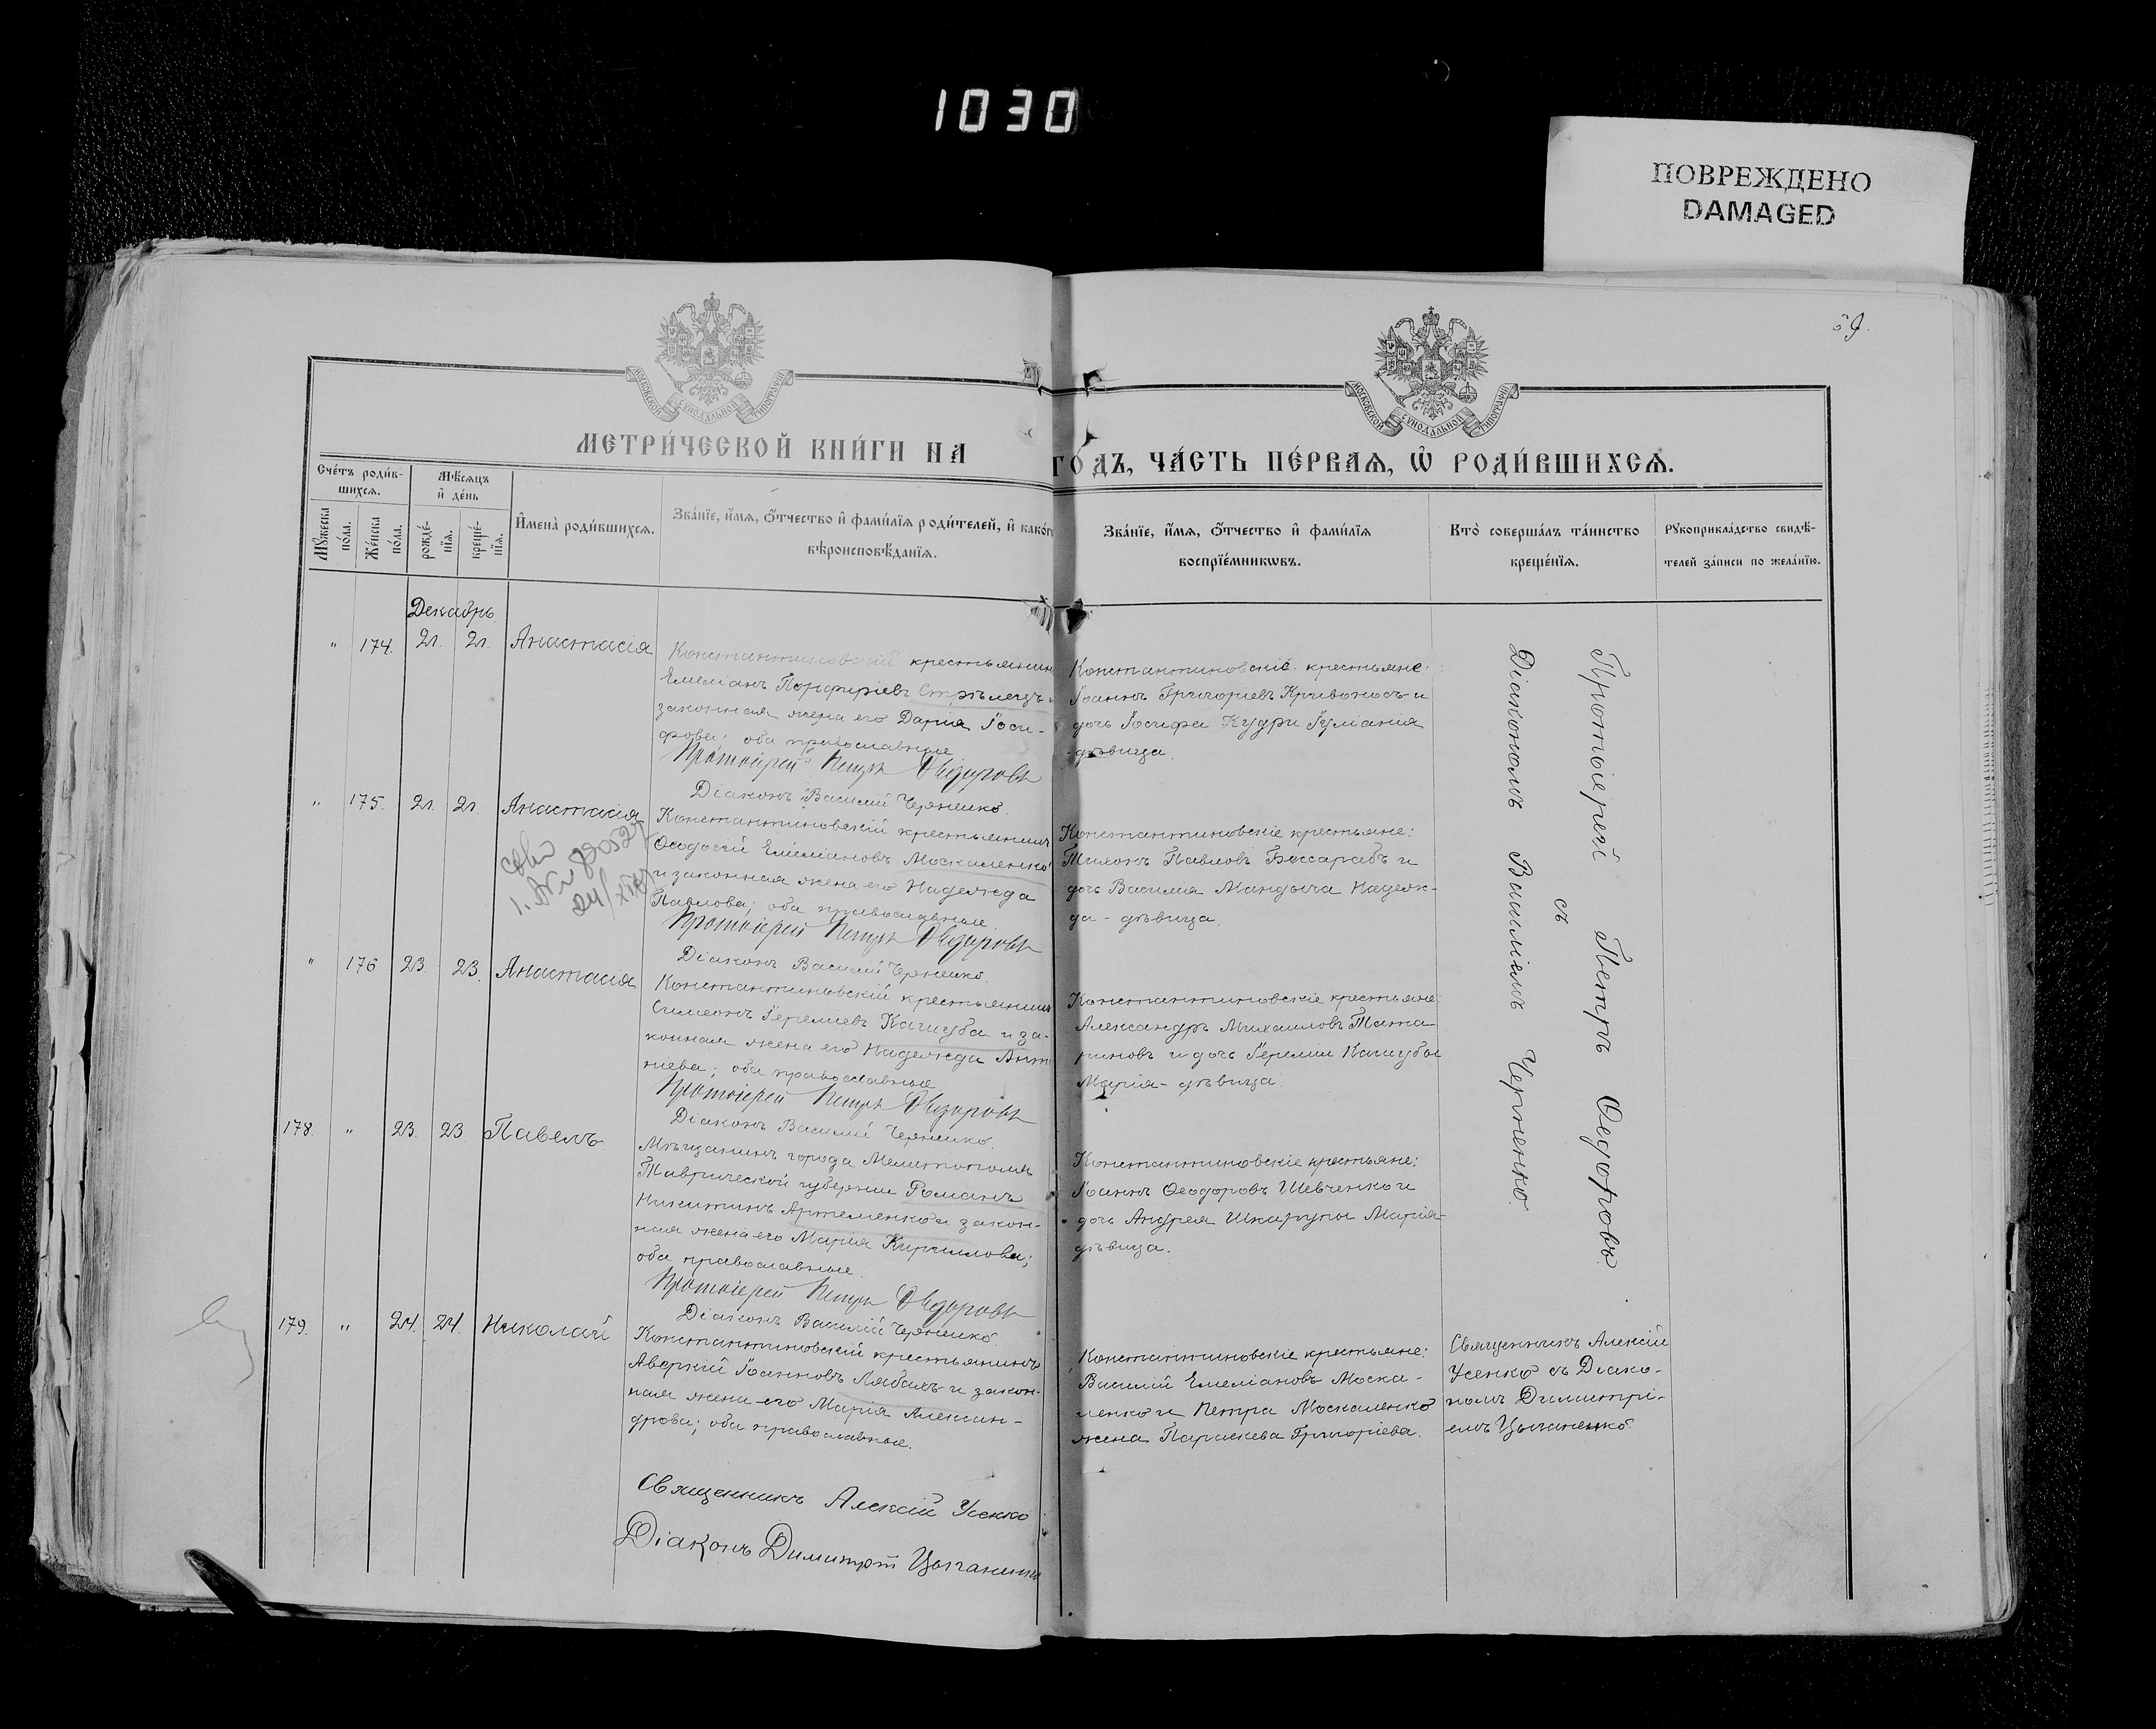 1030
ПОВРЕЖДЕНО
DAMAGED
МОСКОВСКОЙ СѴНОДАЛЬНОЙ ТИПОГРАФІИ
МОСКОВСКОЙ СѴНОДАЛЬНОЙ ТИПОГРАФІИ
МЕТРИ́ЧЕСКОЙ КНИ́ГИ НА
ГО́ДЪ, ЧА́СТЬ ПЕ́РВАѦ, Ѡ҆ РОДИ́ВШИХСѦ.
Сче́тъ роди́в-
шихсѧ.
Мѣ́сѧцъ
и҆ де́нь
Мꙋ́жеска
по́ла.
Же́нска
по́ла.
рожде́-
нїѧ.
креще́-
нїѧ.
И҆мена̀ роди́вшихсѧ.
Зва́нїе, и҆́мѧ, ѻ҆́тчество и҆ фами́лїѧ роди́телей, и҆ како́г
вѣроисповѣ́данїѧ.
Зва́нїе, и҆́мѧ, ѻ҆́тчество и҆ фами́лїѧ
воспрїе́мникѡвъ.
Кто̀ соверша́лъ та́инство
креще́нїѧ.
Рꙋкоприкла́дство свидѣ́-
телей за́писи по жела́нїю.
Декабрь
" 174. 21. 21. Анастасія
Константиновскій крестьянин
Емеліанъ Порфиріевъ Стрѣлецъ и
законная жена его Дарія Іоси-
фова; оба православные
Протоіерей Петръ Ѳедоровъ
Діаконъ Василій Черненко.
Константиновскіе крестьяне:
Іоаннъ Григоріевъ Кривоносъ и
дочь Іосифа Кудри Іуліанія
-дѣвица.
" 175. 21. 21. Анастасія
Константиновскій крестьянинъ
Ѳеодосій Емеліановъ Москаленко
и законная жена его Надежда
Павлова; оба православные
Протоіерей Петръ Ѳедоровъ
Діаконъ Василій Черненко.
Константиновскіе крестьяне:
Тихонъ Павловъ Бессарабъ и
дочь Василія Мандыча Надеж-
да - дѣвица.
" 176 23. 23. Анастасія
Константиновскій крестьянинъ
Симеонъ Іереміевъ Кашуба и за-
конная жена его Надежда Анто
ніева; оба православные.
Протоіерей Петръ Ѳедоровъ
Діаконъ Василій Черненко.
Константиновскіе крестьяне:
Александръ Михаиловъ Тата-
риновъ и дочь Іереміи Кашубы
Марія - дѣвица.
178. " 23. 23 Павелъ
Мѣщанинъ города Мелитополя
Таврической губерніи Романъ
Никитинъ Артеменко и закон-
ная жена его Марія Кириллова;
оба православные.
Протоіерей Петръ Ѳедоровъ
Діаконъ Василій Черненко.
Константиновскіе крестьяне:
Іоаннъ Ѳеодоровъ Шевченко и
дочь Андрея Шкарупы Марія-
дѣвица.
Протоіерей Петръ Ѳедоровъ
съ
Діакономъ Василіемъ Черненко.
179. " 24. 24. Николай
Константиновскій крестьянинъ
Аверкій Іоанновъ Лябахъ и закон-
ная жена его Марія Алексан-
дрова; оба православные.
Константиновскіе крестьяне:
Василій Емеліановъ Моска-
ленко и Петра Москаленко
жена Параскева Григоріева.
Священникъ Алексій
Усенко съ Діако-
номъ Димитрі-
емъ Цыганенко.
Священникъ Алексій Усенко
Діаконъ Димитрій Цыганенко